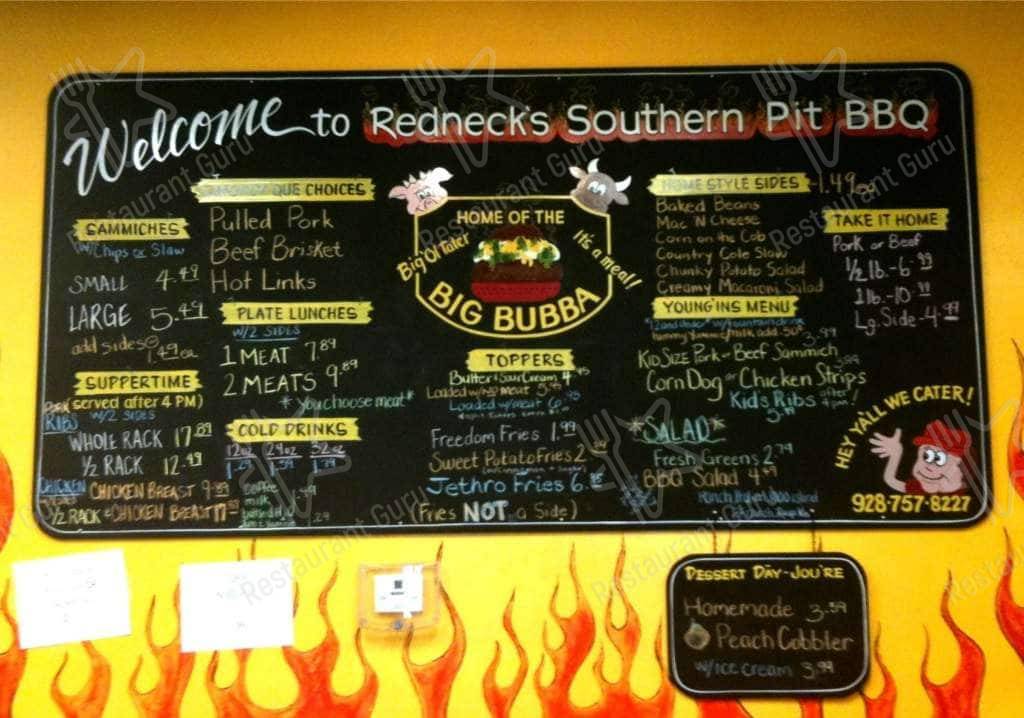 Welcome to Redneck's Southern Pit BBQ
SAMMICHES
w/Chips or Slaw
SMALL 4.49
LARGE 5.49
add sides @ 1.49 ea
SUPPERTIME
(served after 4 PM)
RIBS w/2 SIDES
WHOLE RACK 17.89
1/2 RACK 12.49
CHICKEN
CHICKEN BREAST 9.99
1/2 RACK & CHICKEN BREAST 17
QUE CHOICES
Pulled Pork
Beef Brisket
Hot Links
PLATE LUNCHES
w/2 SIDES
1 MEAT 7.89
2 MEATS 9.89
*you choose meat*
COLD DRINKS
12oz 24oz 32oz
1.29 1.59 1.79
Coffee
milk
HOME OF THE
Big Ol' Tater
It's a meal!
BIG BUBBA
TOPPERS
Butter & Sour Cream 4.95
Loaded w/no meat 5.95
Loaded w/meat 6.95
Freedom Fries 1.99
Sweet Potato Fries 2
Jethro Fries 6.
(Fries NOT a Side)
HOME STYLE SIDES - 1.49 ea
Baked Beans
Mac 'N Cheese
Corn on the Cob
Country Cole Slaw
Chunky Potato Salad
Creamy Macaroni Salad
YOUNG'INS MENU
3.99
Kid Size Pork or Beef Sammich
Corn Dog or Chicken Strips
Kids Ribs after 4pm!
*SALAD*
Fresh Greens 2.79
BBQ Salad 4
Ranch Italian 1000 island
TAKE IT HOME
Pork or Beef
1/2 lb. - 6.99
1 lb. - 10.
Lg. Side - 4.99
HEY YA'LL WE CATER!
928-757-8227
DESSERT DAY-JOU'RE
Homemade 3.59
Peach Cobbler
w/ice cream 3.99
Restaurant Guru